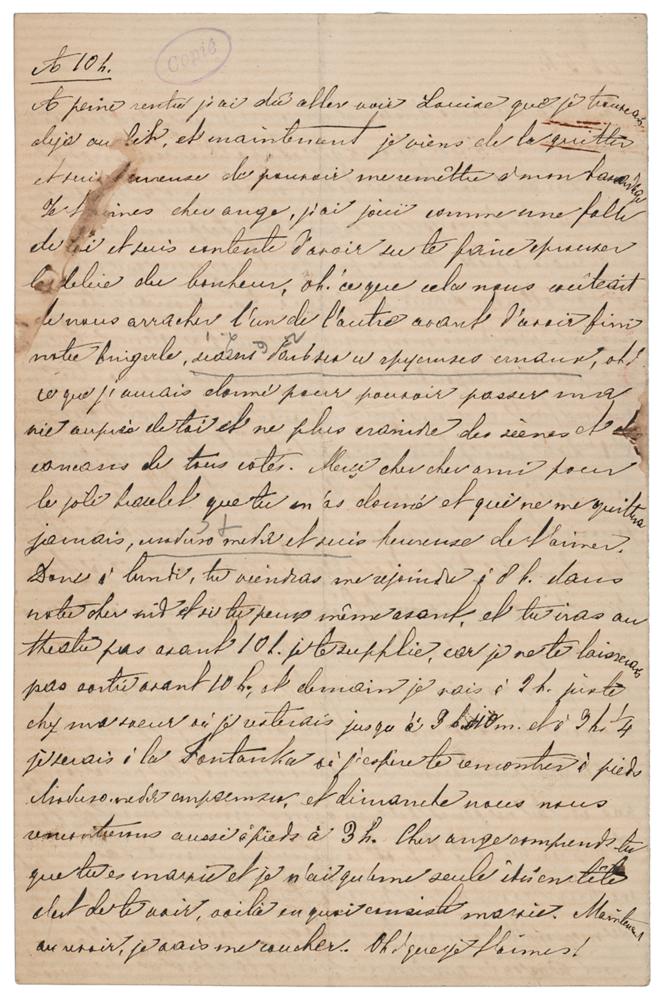 Copie
A 10 h.
A peine rentré j'ai dû aller voir Louise que je trouvais
déjà au lit, et maintenant je viens de la quitter
et suis heureuse de pouvoir me remettre à mon
Je t'aimes cher ange, j'ai joui comme une folle
de toi et suis contente d'avoir su te faire éprouver
le délire du bonheur, oh! ce que cela nous coûtait
de nous arracher l'un de l'autre avant d'avoir fini
notre bingerle, oh!
ce que j'aurais donné pour pouvoir passer ma
vie auprès de toi et ne plus craindre des scènes et des
cancans de tous cotés. Merci cher cher ami pour
le joli bracelet que tu m'as donné et qui ne me quittera
jamais, et suis heureuse de t'aimer.
Donc à lundi, tu viendras me rejoindre à 8 h. dans
notre cher nid et si tu peux même avant, et tu iras au
théatre pas avant 10 h. je te supplie, car je ne te laisserais
pas sortir avant 10 h, et demain je vais à 2 h. juste
chez ma soeur où je resterais jusqu'à 3 h. m. et à 3 h 1/4
je serais à la Fontanka où j'espère te rencontrer à pieds
et dimanche nous nous
rencontrerons aussi à pieds à 3 h. Cher ange comprends-tu
que tu es ma vie et je n'ai qu'une seule idée en tête
c'est de te voir, voilà en quoi consiste ma vie. Maintenant
au revoir, je vais me coucher. Oh! que je t'aimes!